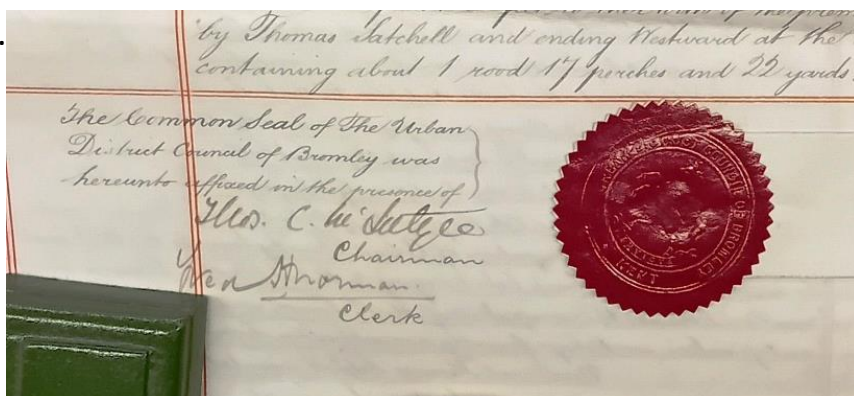 by Thomas Satchell and ending Westward at the
containing about 1 rood 17 perches and 22 yards.
The Common Seal of The Urban
District Council of Bromley was
hereunto affixed in the presence of
Thos. C.
Chairman
Clerk
COUNCIL OF BROMLEY
KENT